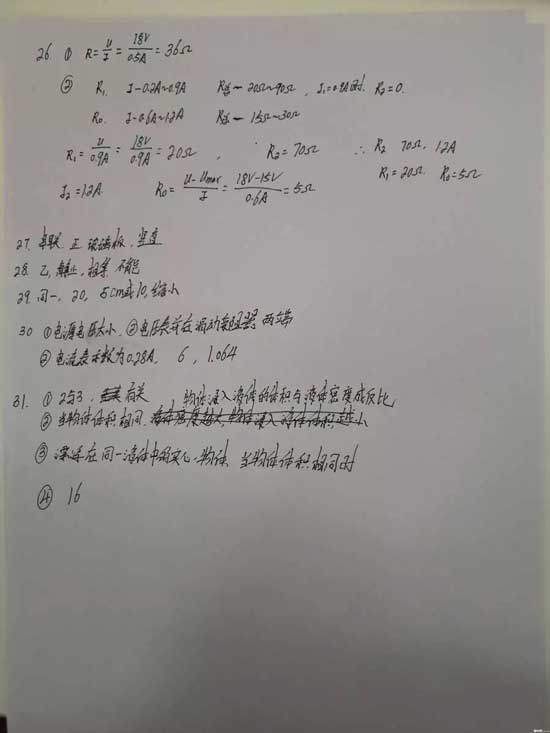 26. ① R=U/I=18V/0.5A=36Ω
② R₁ I-0.2A~0.9A R总-20Ω~90Ω, I₁=0.9A时 R₂=0.
R₀ I-0.6A~1.2A R总-15Ω~30Ω
R₁=U/0.9A=18V/0.9A=20Ω, R₂=70Ω ∴ R₂ 70Ω, 1.2A
I₂=1.2A R₀=U-Umax/I=18V-15V/0.6A=5Ω R₁=20Ω R₀=5Ω
27. 串联 正 玻璃板
28. 乙, 静止, 不能
29. 同一, 20, 5cm或10, 缩小
30 ①电源电压太小, ②电压表并在滑动变阻器两端
③电流表示数为0.28A, 6, 1.064
31. ① 2与3, 有关 物体浸入液体的体积与液体密度成反比
② 当物体体积相同, 液体密度越大, 物体浸入液体体积越小
③ 在同一液体中 物体, 当物体体积相同时
④ 16